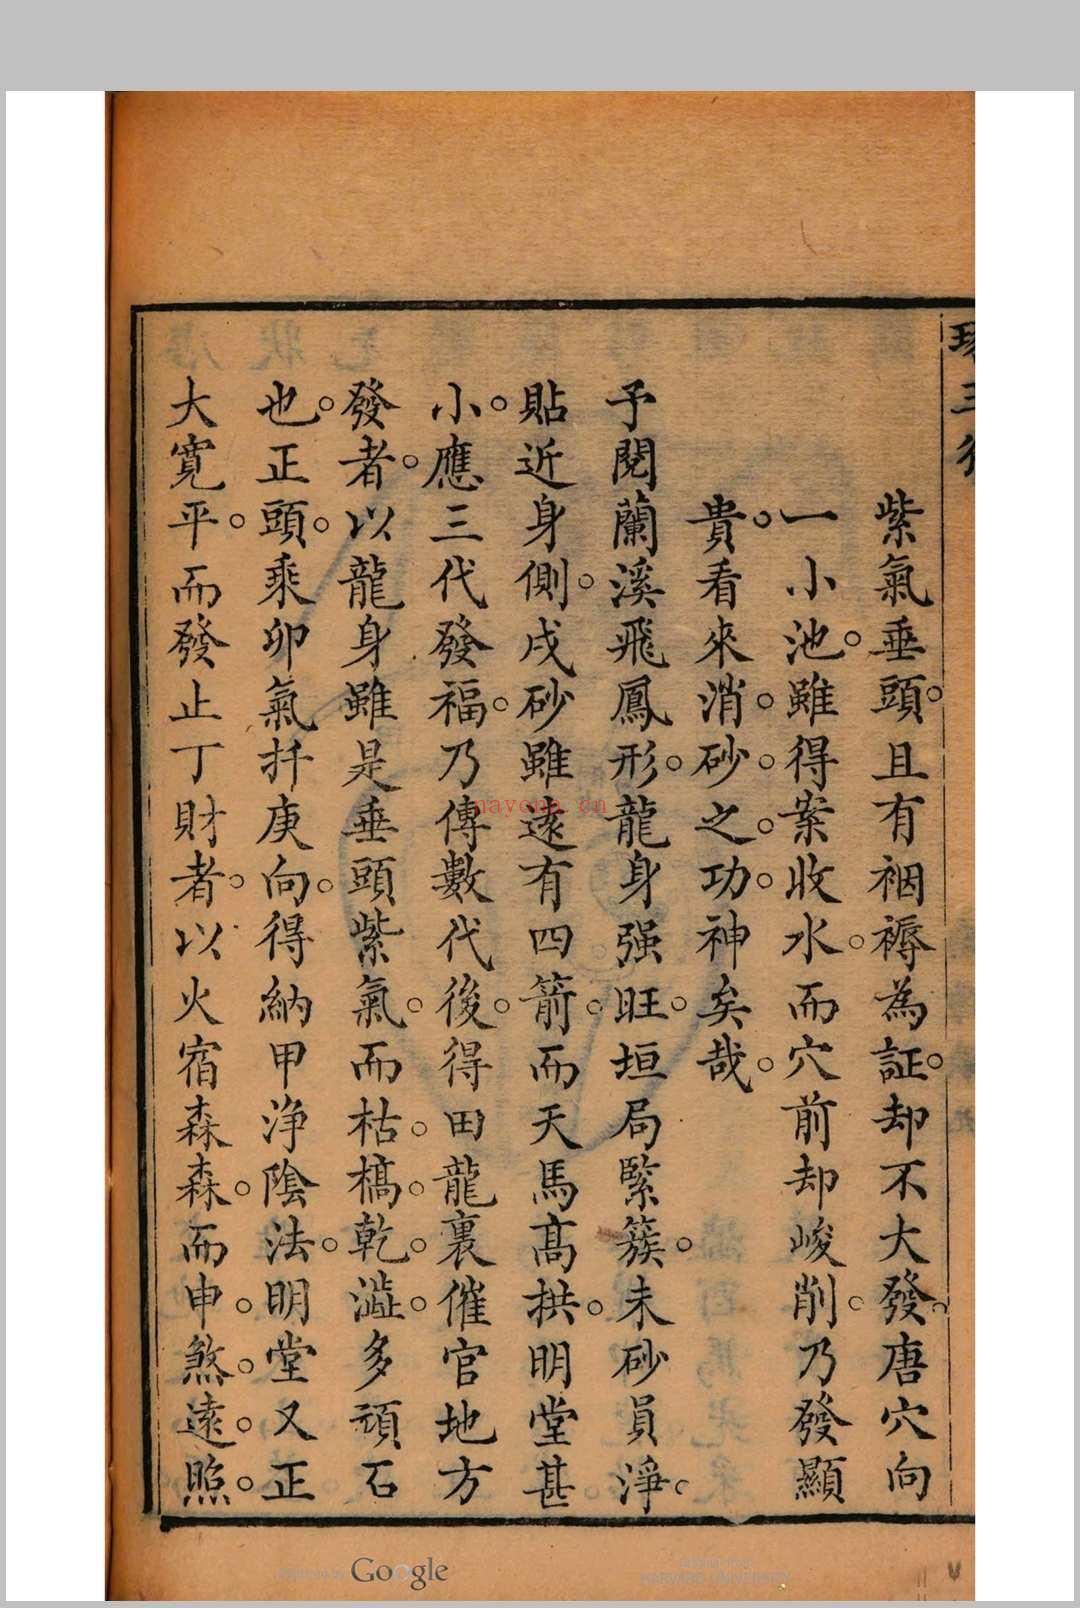 紫氣垂頭。且有裀褥為証。却不大發。唐穴向
一小池。雖得案收水。而穴前却峻削。乃發顯
貴。看來消。砂。之。功。神矣哉。
予閱蘭溪飛鳳形。龍身强旺。垣局緊簇。未砂員淨。
貼近身側。戌砂雖遠有四箭。而天馬高拱。明堂甚
小。應三代發福。乃傳數代後。得田龍裏催官地方
發者。以龍身雖是垂頭紫氣。而枯。槁。乾。澁。多頑石
也。正頭。乘卯氣扦庚向。得納甲淨陰法。明堂又正
大寛平。而發止丁財者。以火宿森森。而申。煞。遠。照。
nayona.cn
Google
HARVARD UNIVERSITY